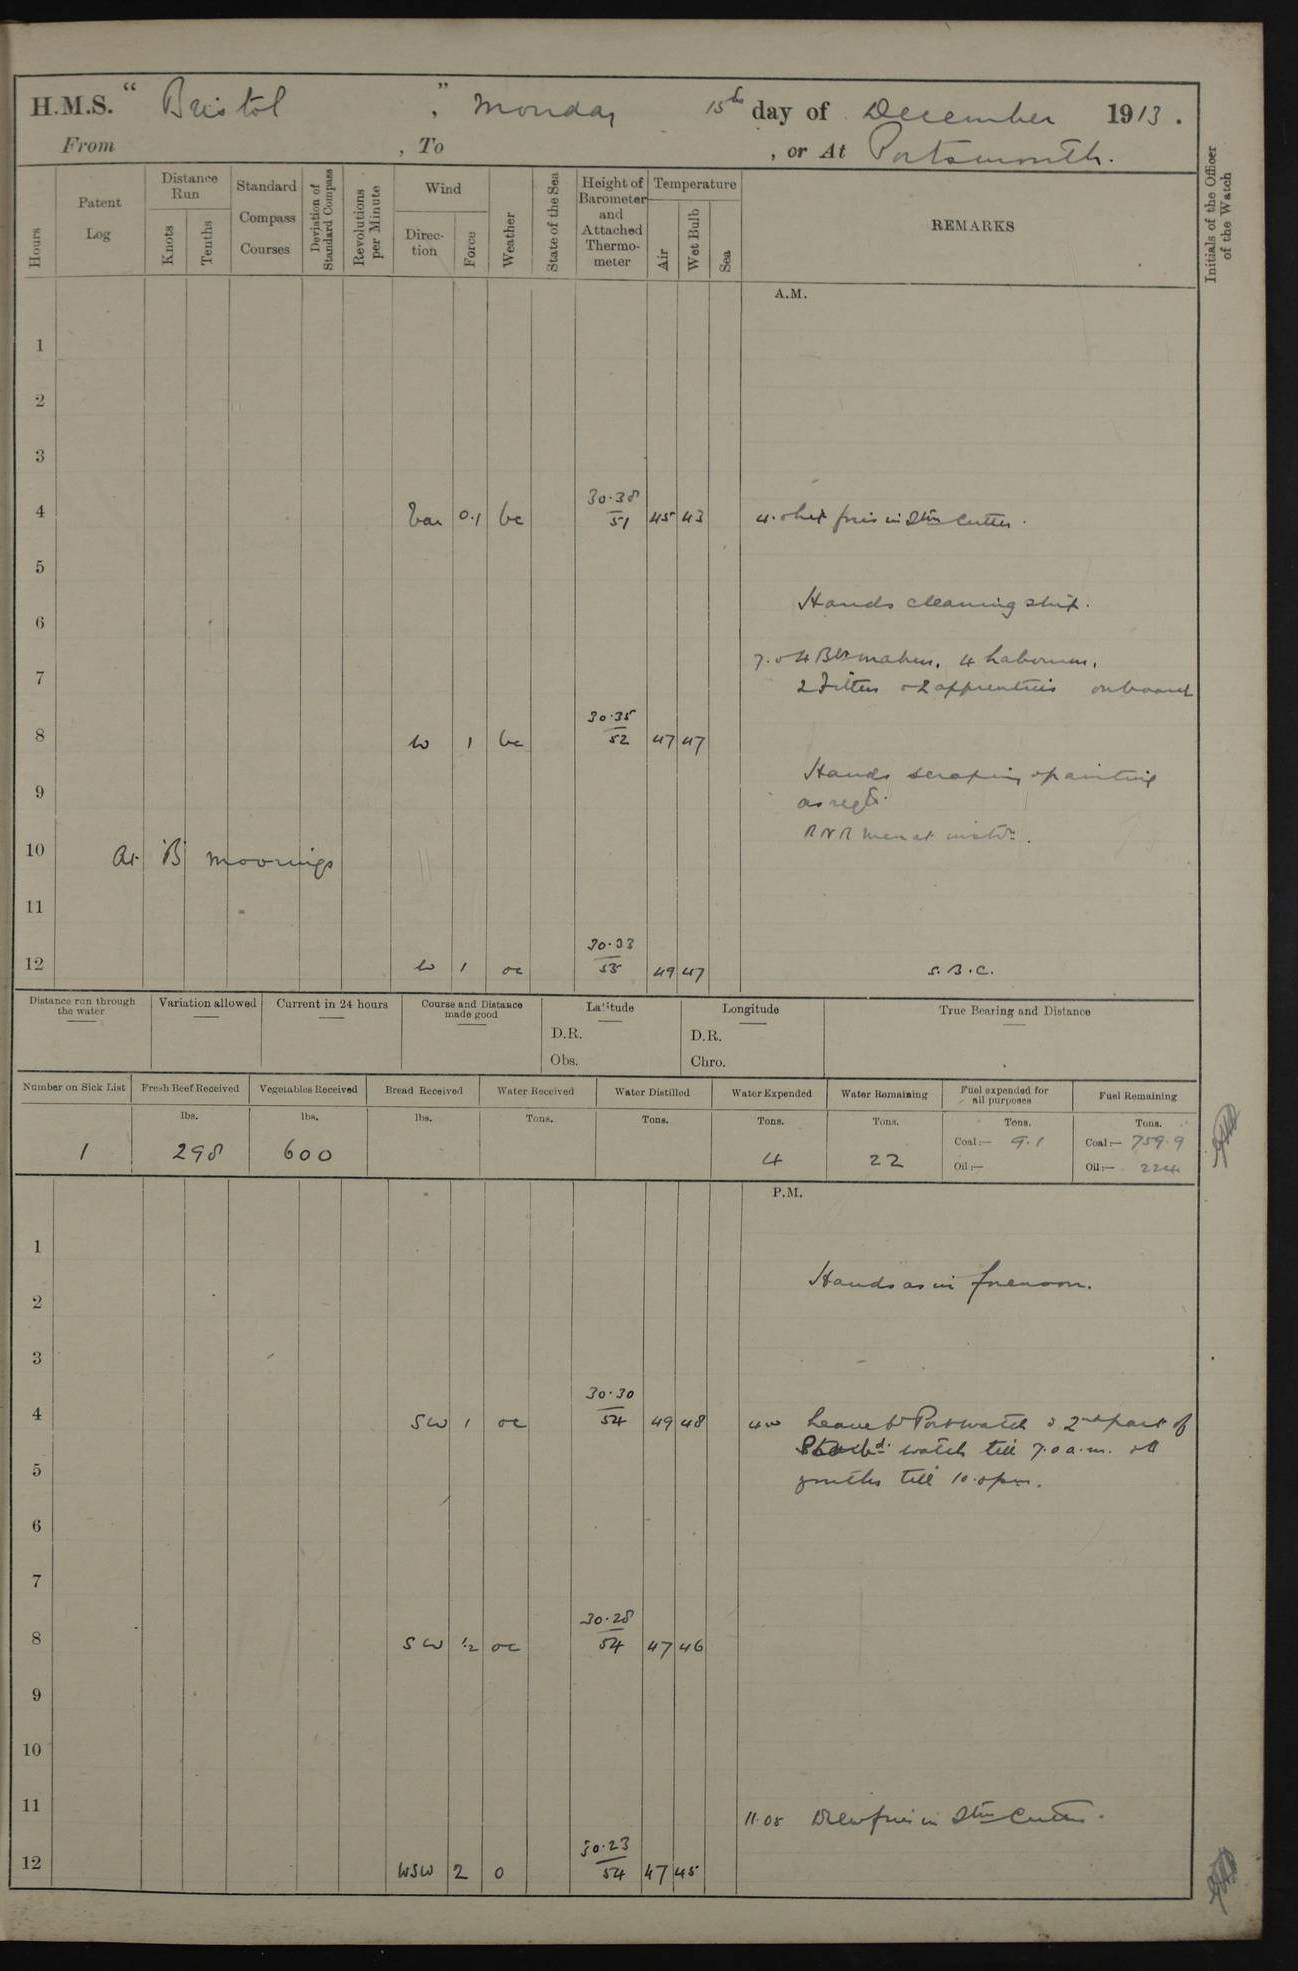 H.M.S. "Bristol", Monday 15th day of December 1913.
From , To , or At Portsmouth.
Hours
Patent Log
Distance Run
Knots
Tenths
Standard Compass Courses
Deviation of Standard Compass
Revolutions per Minute
Wind
Direction
Force
Weather
State of the Sea
Height of Barometer and Attached Thermometer
Temperature
Air
Wet Bulb
Sea
REMARKS
Initials of the Officer of the Watch
A.M.
1
2
3
4 Var 0.1 bc 30.38/51 45 43 4.0 fires in Stm Cutter.
5
Hands cleaning ship.
6
7.0 4 Blrmakers, 4 Labourers,
7 2 Fitters & 2 apprentices onboard
8 W 1 bc 30.35/52 47 47
Hands scraping & painting
9 as reqd.
RNR men at instn.
10 At 'B' moorings
11
12 W 1 oc 30.33/53 49 47 S.B.C.
Distance run through the water
Variation allowed
Current in 24 hours
Course and Distance made good
Latitude
D.R.
Obs.
Longitude
D.R.
Chro.
True Bearing and Distance
Number on Sick List
Fresh Beef Received
Vegetables Received
Bread Received
Water Received
Water Distilled
Water Expended
Water Remaining
Fuel expended for all purposes
Fuel Remaining
lbs. lbs. lbs. Tons. Tons. Tons. Tons. Tons. Tons.
1 298 600 4 22 Coal:— 9.1 Coal:— 759.9
Oil:— Oil:— 224
P.M.
1
Hands as in forenoon.
2
3
4 SW 1 oc 30.30/54 49 48 4.0 Leave to Port watch & 2nd part of
Starbd. watch till 7.0 a.m.
5 youths till 10.0 pm.
6
7
8 SW ½ oc 30.28/54 47 46
9
10
11 11.05 Drew fires in Stm Cutter.
12 WSW 2 o 30.23/54 47 45